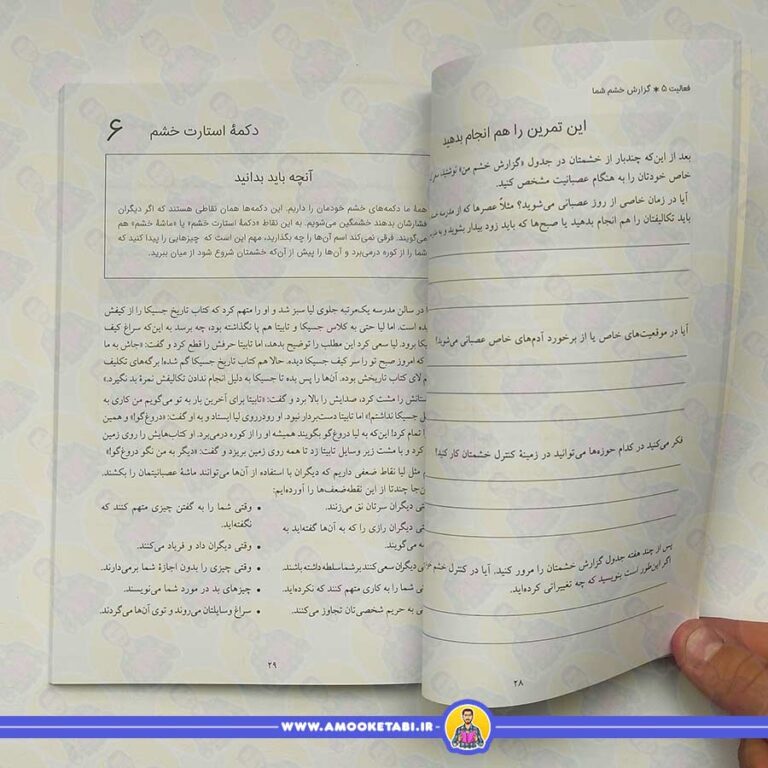 فعالیت ۵ * گزارش خشم شما
این تمرین را هم انجام بدهید
بعد از این‌که چندبار از خشمتان در جدول «گزارش خشم من» نوشتید،
خاص خودتان را به هنگام عصبانیت مشخص کنید.
آیا در زمان خاصی از روز عصبانی می‌شوید؟ مثلاً عصرها که از مدرسه
باید تکالیفتان را هم انجام بدهید یا صبح‌ها که باید زود بیدار بشوید و به
آیا در موقعیت‌های خاص یا از برخورد آدم‌های خاص عصبانی می‌شوید؟
فکر می‌کنید در کدام حوزه‌ها می‌توانید در زمینهٔ کنترل خشمتان کار کنید؟
پس از چند هفته جدول گزارش خشمتان را مرور کنید. آیا در کنترل خشم
اگر این‌طور است بنویسید که چه تغییراتی کرده‌اید.
۲۸
۶ دکمهٔ استارت خشم
آنچه باید بدانید
همهٔ ما دکمه‌های خشم خودمان را داریم. این دکمه‌ها همان نقاطی هستند که اگر دیگران
فشارشان بدهند خشمگین می‌شویم. به این نقاط «دکمهٔ استارت خشم» یا «ماشهٔ خشم» هم
می‌گویند. فرقی نمی‌کند اسم آن‌ها را چه بگذارید، مهم این است که چیزهایی را پیدا کنید که
شما را از کوره درمی‌برد و آن‌ها را پیش از آن‌که خشمتان شروع شود از میان ببرید.
در سالن مدرسه یک‌مرتبه جلوی لیا سبز شد و او را متهم کرد که کتاب تاریخ جسیکا را از کیفش
است. اما لیا حتی به کلاس جسیکا و تابیتا هم پا نگذاشته بود، چه برسد به این‌که سراغ کیف
برود. لیا سعی کرد این مطلب را توضیح بدهد، اما تابیتا حرفش را قطع کرد و گفت: «جاش به ما
که امروز صبح تو را سر کیف جسیکا دیده. حالا هم کتاب تاریخ جسیکا گم شده! برگه‌های تکلیف
لای کتاب تاریخش بوده. آن‌ها را پس بده تا جسیکا به دلیل انجام ندادن تکالیفش نمرهٔ بد نگیرد.»
را مشت کرد، صدایش را بالا برد و گفت: «تابیتا برای آخرین بار به تو می‌گویم من کاری به
جسیکا نداشتم!» اما تابیتا دست‌بردار نبود. او رودرروی لیا ایستاد و به او گفت: «دروغ‌گو!» و همین
تمام کرد! این‌که به لیا دروغ‌گو بگویند همیشه او را از کوره درمی‌برد. او کتاب‌هایش را روی زمین
کرد و با مشت زیر وسایل تابیتا زد تا همه روی زمین بریزد و گفت: «دیگر به من نگو دروغ‌گو!»
مثل لیا نقاط ضعفی داریم که دیگران با استفاده از آن‌ها می‌توانند ماشهٔ عصبانیتمان را بکشند.
چندتا از این نقطه‌ضعف‌ها را آورده‌ایم:
دیگران سرتان نق می‌زنند.
دیگران رازی را که به آن‌ها گفته‌اید به
می‌گویند.
دیگران سعی کنند بر شما سلطه داشته باشند.
شما را به کاری متهم کنند که نکرده‌اید.
به حریم شخصی‌تان تجاوز می‌کنند.
• وقتی شما را به گفتن چیزی متهم کنند که
نگفته‌اید.
• وقتی دیگران داد و فریاد می‌کنند.
• وقتی چیزی را بدون اجازهٔ شما برمی‌دارند.
• چیزهای بد در مورد شما می‌نویسند.
• سراغ وسایلتان می‌روند و توی آن‌ها می‌گردند.
۲۹
WWW.AMOOKETABI.IR